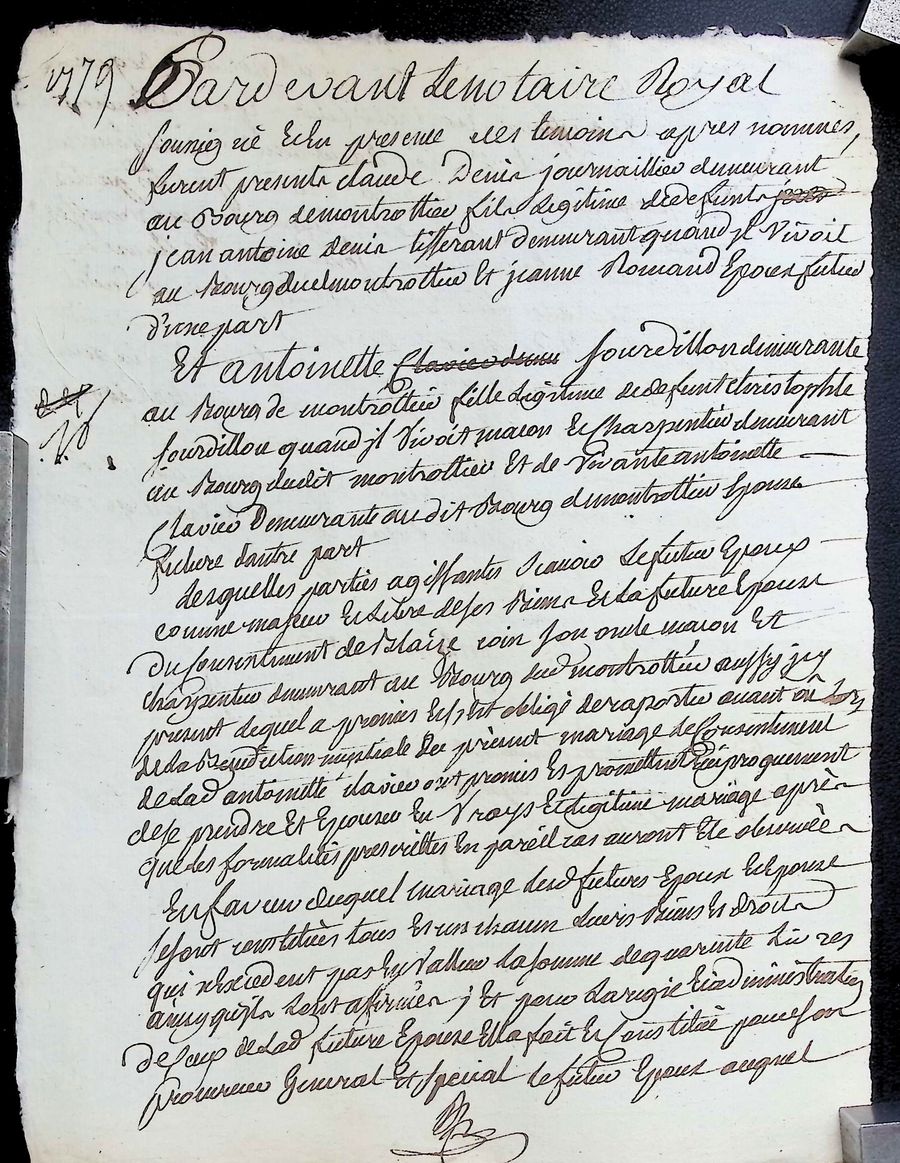 1779
Pardevant le notaire Royal
soussigné et en presence des temoins apres nommés,
furent presents claude Denis journaillier demeurant
au Bourg de montrottier fils legitime de defunts
jean antoine denis tisserant demeurant quand jl vivoit
au Bourg dud montrottier Et jeanne Romand Epoux futur
d'une part
Et antoinette Clavier demeu Jourdillon demeurante
au Bourg de montrottier fille legitime de defunt christophle
Jourdillon quand jl vivoit macon et charpentier demeurant
au Bourg dudit montrottier Et de vivante antoinette
Clavier Demeurante au dit Bourg de montrottier Epouse
future d'autre part
Lesquelles parties agissantes scavoir le futur Epoux
comme majeur et libre de ses Biens et la future Epouse
du consentement de Blaise coin son oncle macon Et
charpentier demeurant au Bourg dud montrottier aussy jcy
present lequel a promis et s'est obligé de raporter avant
de la Benediction nuptiale du present mariage le consentement
de lad antoinette clavier ont promis et promettent réciproquement
de se prendre Et Epouser En vrays et legitime mariage après
que les formalités prescrittes En pareil cas auront Eté observée
En faveur duquel mariage lesd futurs Epoux et Epouse
se sont constitués tous et un chacun leurs Biens et droits
qui n'Excedent pas En valleur la somme de quarente Livres
ainsy qu'jls l'ont afirmés ; Et pour la regie et administration
de ceux de lad future Epouse Elle a fait et constitué pour son
procureur General Et special le futur Epoux auquel